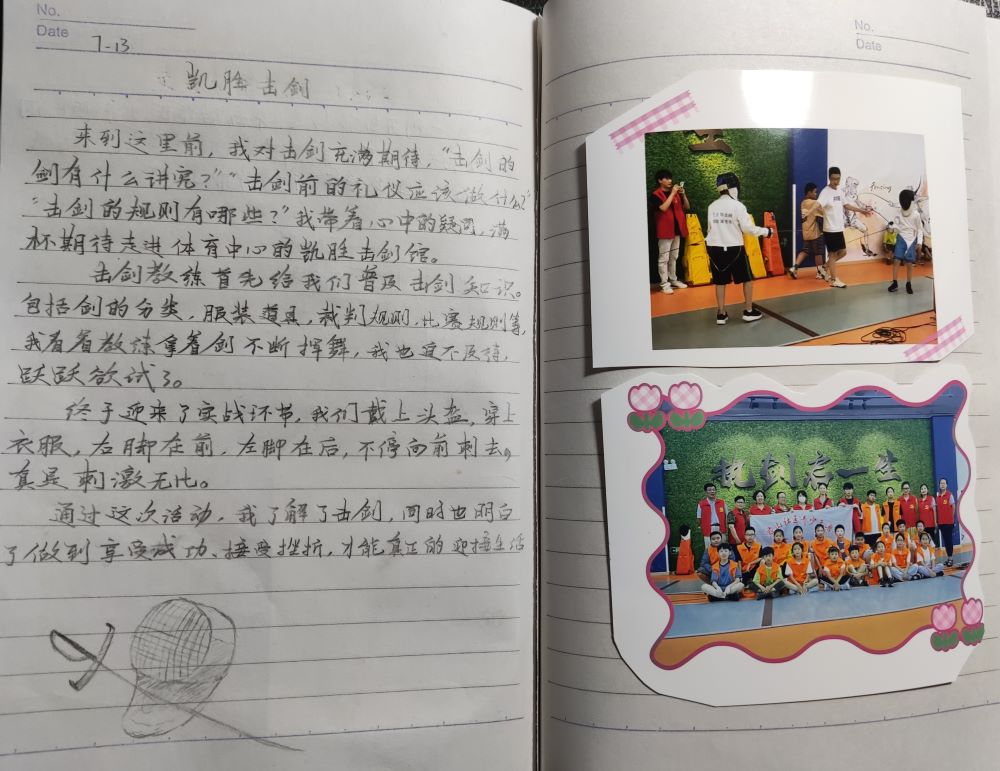 No.
Date 7-13
凯胜击剑
来到这里前，我对击剑充满期待，“击剑的
剑有什么讲究？”“击剑前的礼仪应该做什么？”
“击剑的规则有哪些？”我带着心中的疑问，满
怀期待走进体育中心的凯胜击剑馆。
击剑教练首先给我们普及击剑知识。
包括剑的分类，服装道具，裁判规则，比赛规则等，
我看着教练拿着剑不断挥舞，我也迫不及待，
跃跃欲试了。
终于迎来了实战环节，我们戴上头盔，穿上
衣服，右脚在前，左脚在后，不停向前刺去。
真是刺激无比。
通过这次活动，我了解了击剑，同时也明白
了做到享受成功、接受挫折，才能真正的迎接生活
No.
Date
fencing
执剑忘一生